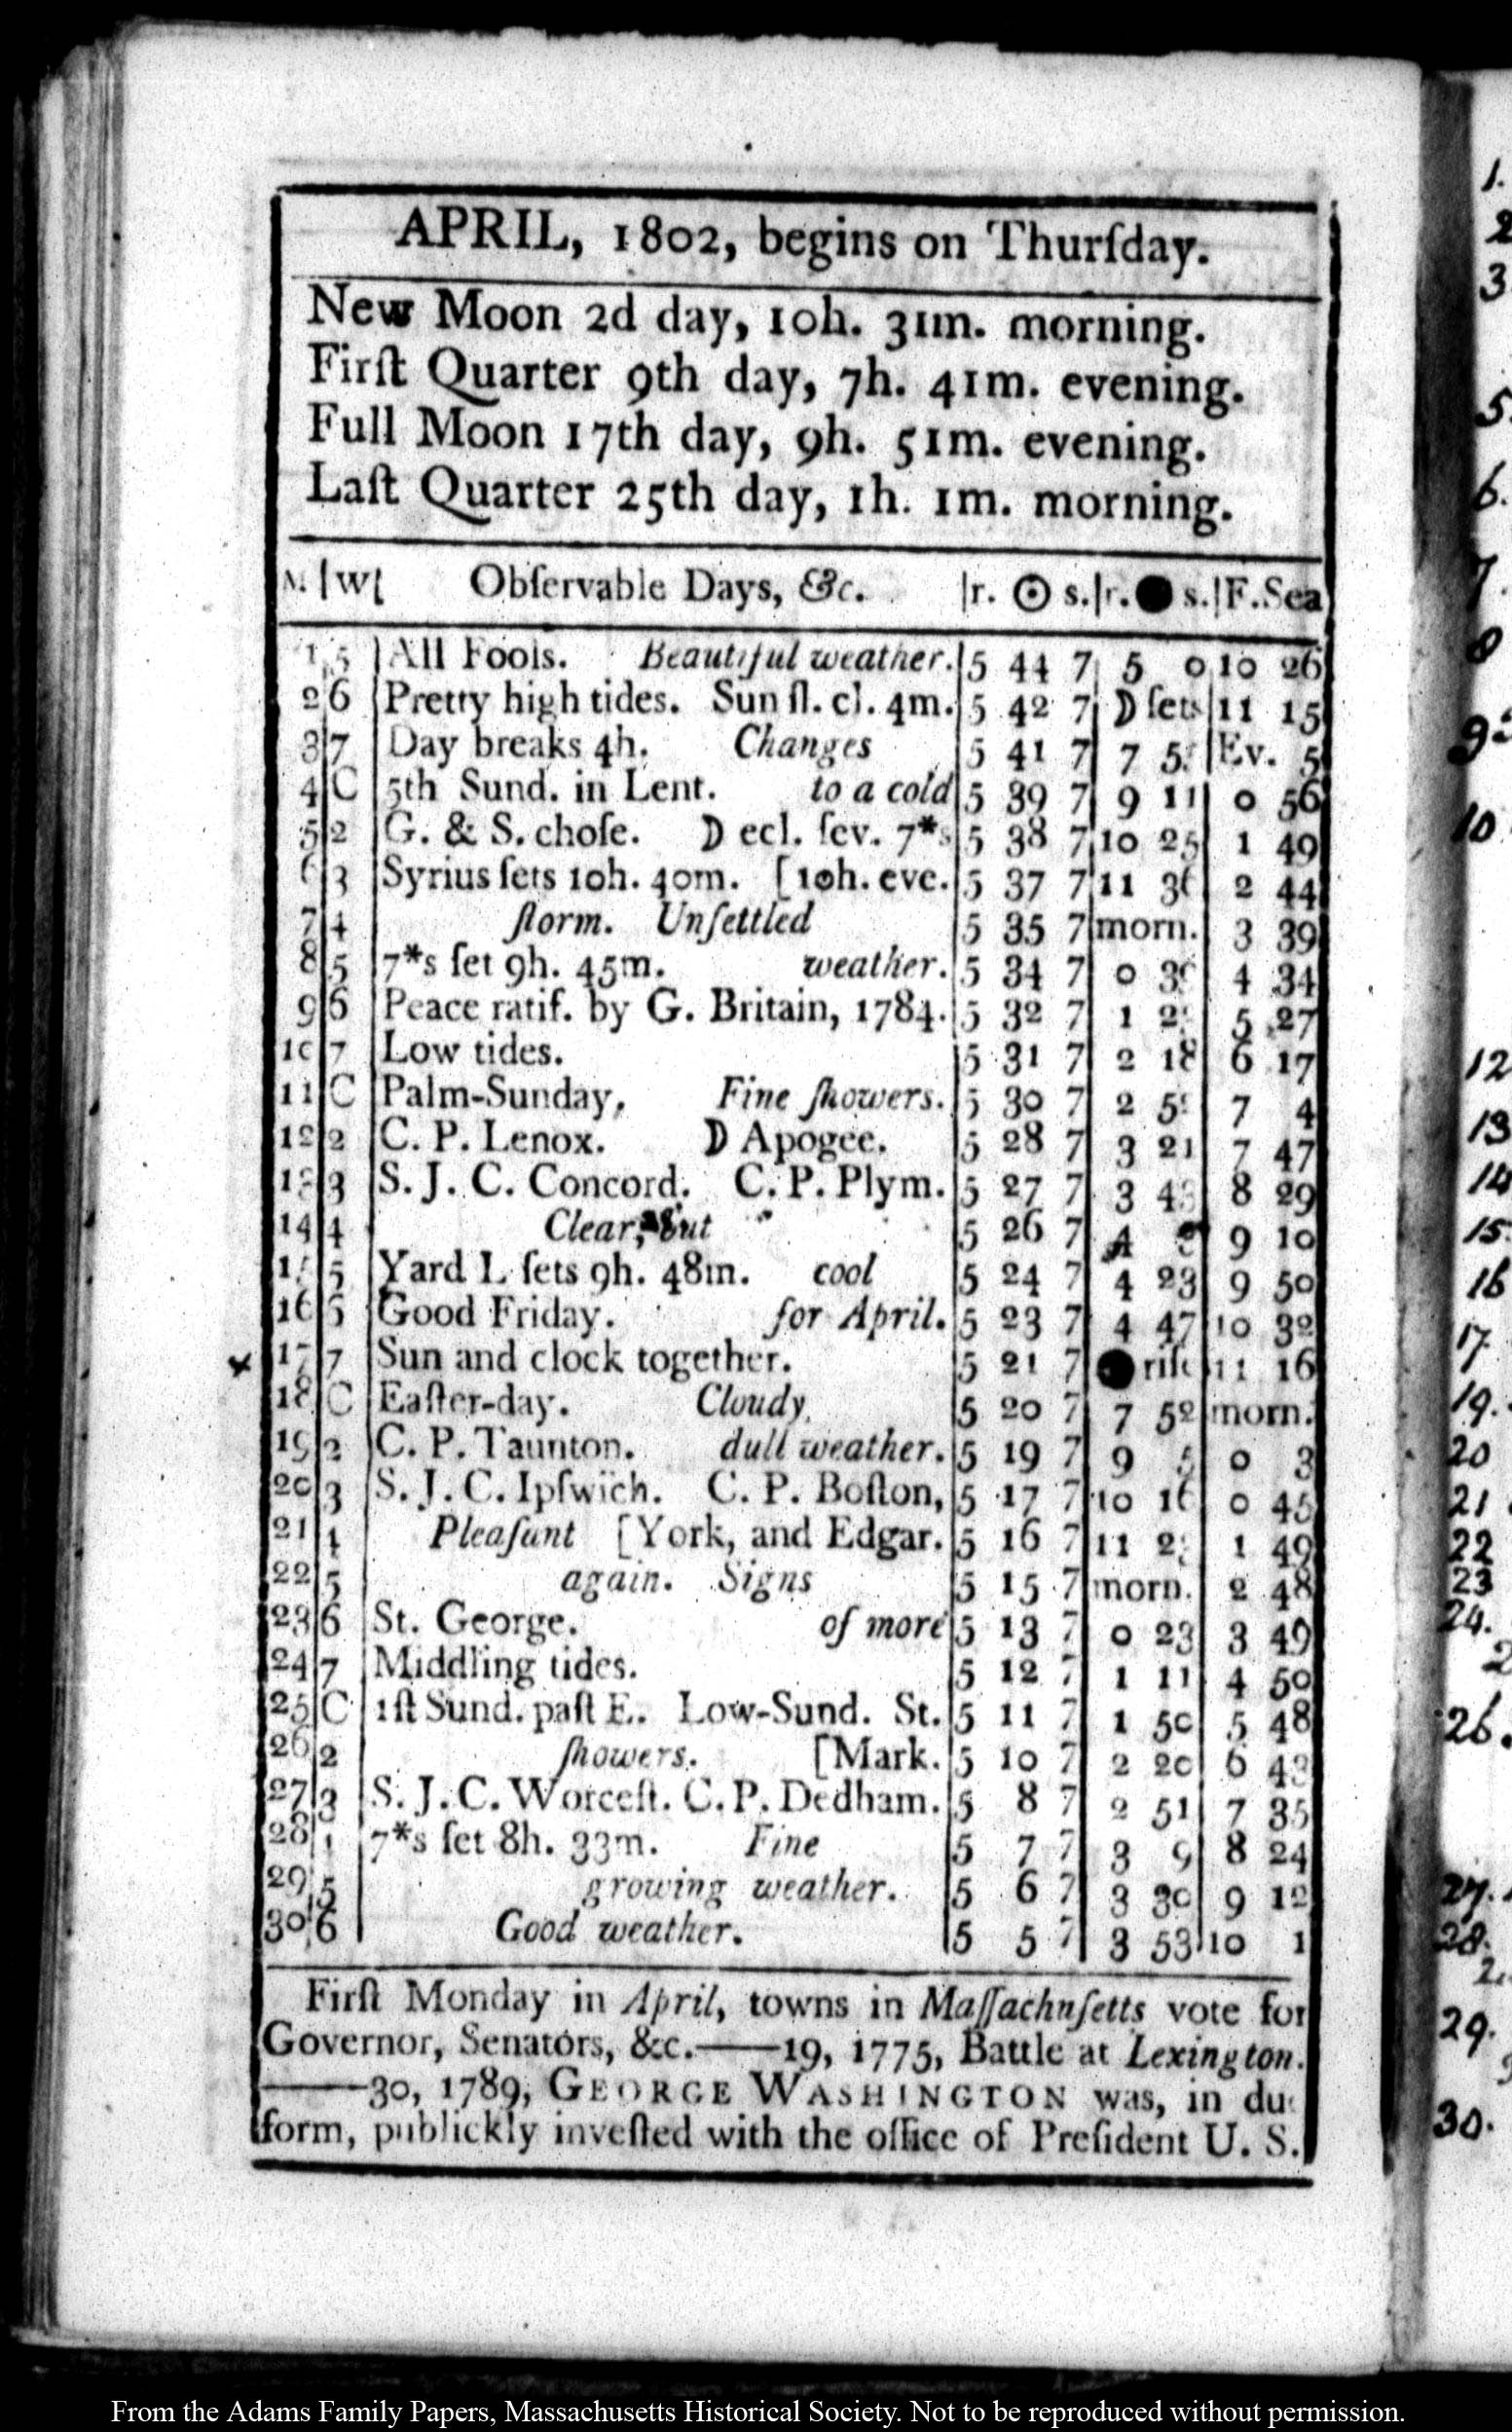 APRIL, 1802, begins on Thurſday.
New Moon 2d day, 10h. 31m. morning.
Firſt Quarter 9th day, 7h. 41m. evening.
Full Moon 17th day, 9h. 51m. evening.
Laſt Quarter 25th day, 1h. 1m. morning.
M. |W| Obſervable Days, &c. |r. ☉ s.|r. ● s.|F.Sea
1 5 |All Fools. Beautiful weather.|5 44 7| 5 0|10 26
2|6 |Pretty high tides. Sun ſl. cl. 4m.|5 42 7| D ſets|11 15
3|7 |Day breaks 4h. Changes |5 41 7| 7 |Ev. 5
4|C |5th Sund. in Lent. to a cold|5 39 7| 9 11| 0 56
5|2 |G. & S. choſe. D ecl. ſev. 7*s|5 38 7|10 25| 1 49
6|3 |Syrius ſets 10h. 40m. [10h. eve.|5 37 7|11 | 2 44
7|4 | ſtorm. Unſettled |5 35 7|morn.| 3 39
8|5 |7*s ſet 9h. 45m. weather.|5 34 7| 0 | 4 34
9|6 |Peace ratif. by G. Britain, 1784.|5 32 7| 1 | 5 27
10|7 |Low tides. |5 31 7| 2 18| 6 17
11|C |Palm-Sunday, Fine ſhowers.|5 30 7| 2 | 7 4
12|2 |C. P. Lenox. D Apogee. |5 28 7| 3 21| 7 47
13|3 |S. J. C. Concord. C. P. Plym.|5 27 7| 3 | 8 29
14|4 | Clear, but |5 26 7| 4 | 9 10
15|5 |Yard L ſets 9h. 48m. cool |5 24 7| 4 23| 9 50
16|6 |Good Friday. for April.|5 23 7| 4 47|10 32
17|7 |Sun and clock together. |5 21 7| ● riſe|11 16
18|C |Eaſter-day. Cloudy, |5 20 7| 7 52|morn.
19|2 |C. P. Taunton. dull weather.|5 19 7| 9 | 0 3
20|3 |S. J. C. Ipſwich. C. P. Boſton,|5 17 7|10 16| 0 45
21|4 | Pleaſant [York, and Edgar.|5 16 7|11 | 1 49
22|5 | again. Signs |5 15 7|morn.| 2 48
23|6 |St. George. of more|5 13 7| 0 23| 3 49
24|7 |Middling tides. |5 12 7| 1 11| 4 50
25|C |1ſt Sund. paſt E. Low-Sund. St.|5 11 7| 1 50| 5 48
26|2 | ſhowers. [Mark.|5 10 7| 2 20| 6 43
27|3 |S. J. C. Worceſt. C. P. Dedham.|5 8 7| 2 51| 7 35
28|4 |7*s ſet 8h. 33m. Fine |5 7 7| 3 9| 8 24
29|5 | growing weather. |5 6 7| 3 30| 9 12
30|6 | Good weather. |5 5 7| 3 53|10 1
Firſt Monday in April, towns in Maſſachnſetts vote for
Governor, Senators, &c.——19, 1775, Battle at Lexington.
——30, 1789, GEORGE WASHINGTON was, in due
form, publickly inveſted with the office of Preſident U. S.
1.
2
3
5.
6.
7.
8
9
10
12
13
14
15.
16
17.
19.
20
21
22
23
24.
26.
27.
28.
29.
30.
From the Adams Family Papers, Massachusetts Historical Society. Not to be reproduced without permission.